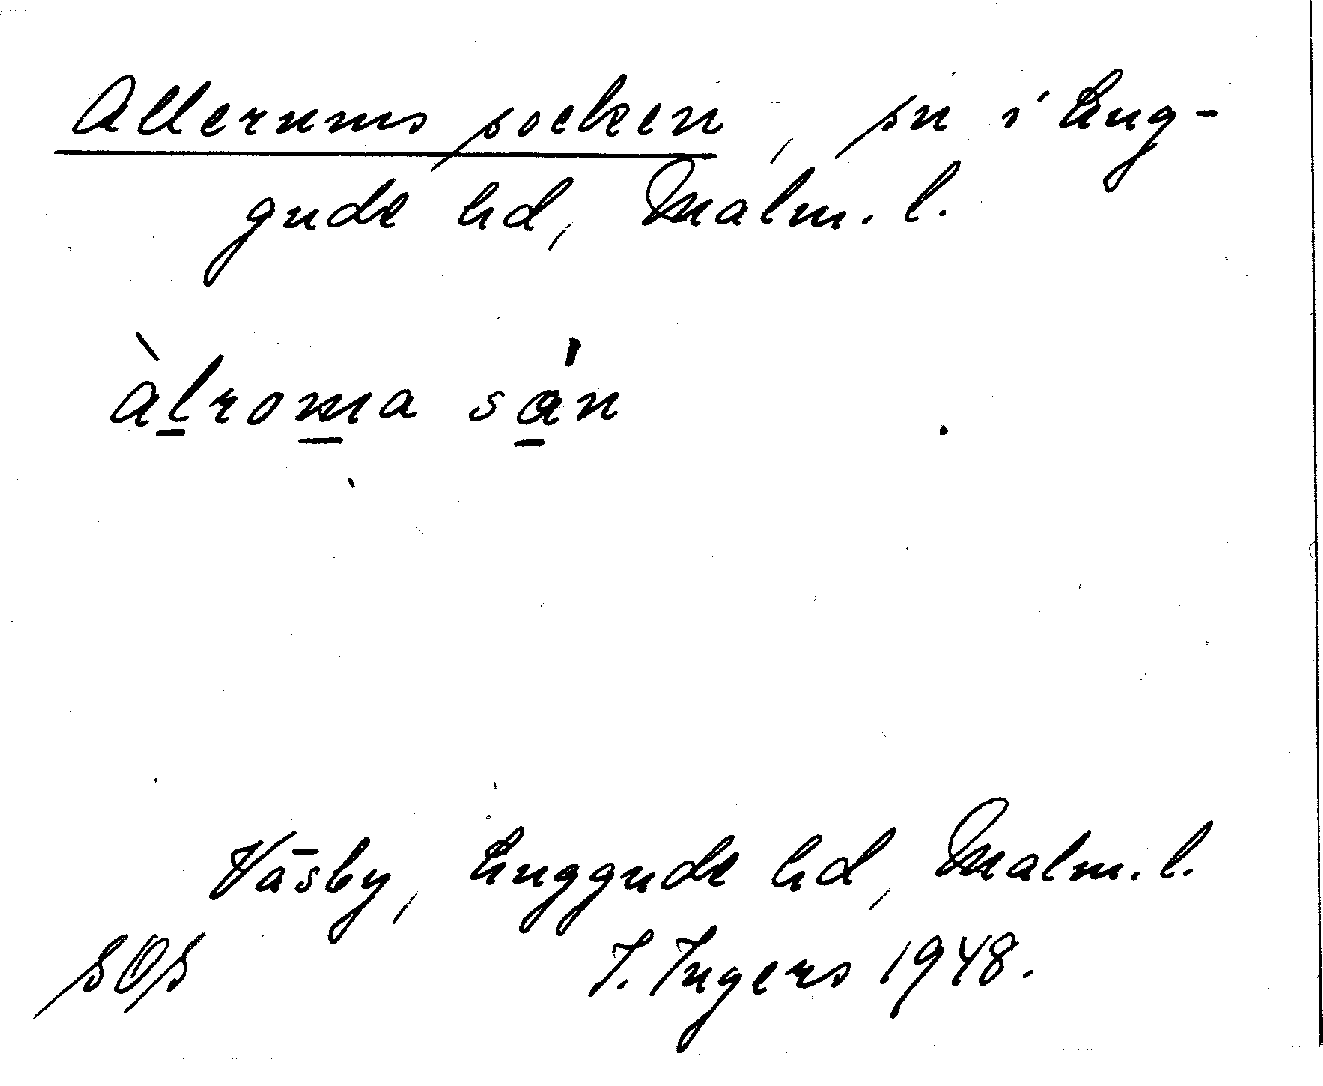 Allerums socken, sn i Lugg-
gude hd, Malm. l.
àlroma sán
Väsby, Luggude hd, Malm. l.
SOS I. Ingers 1948.